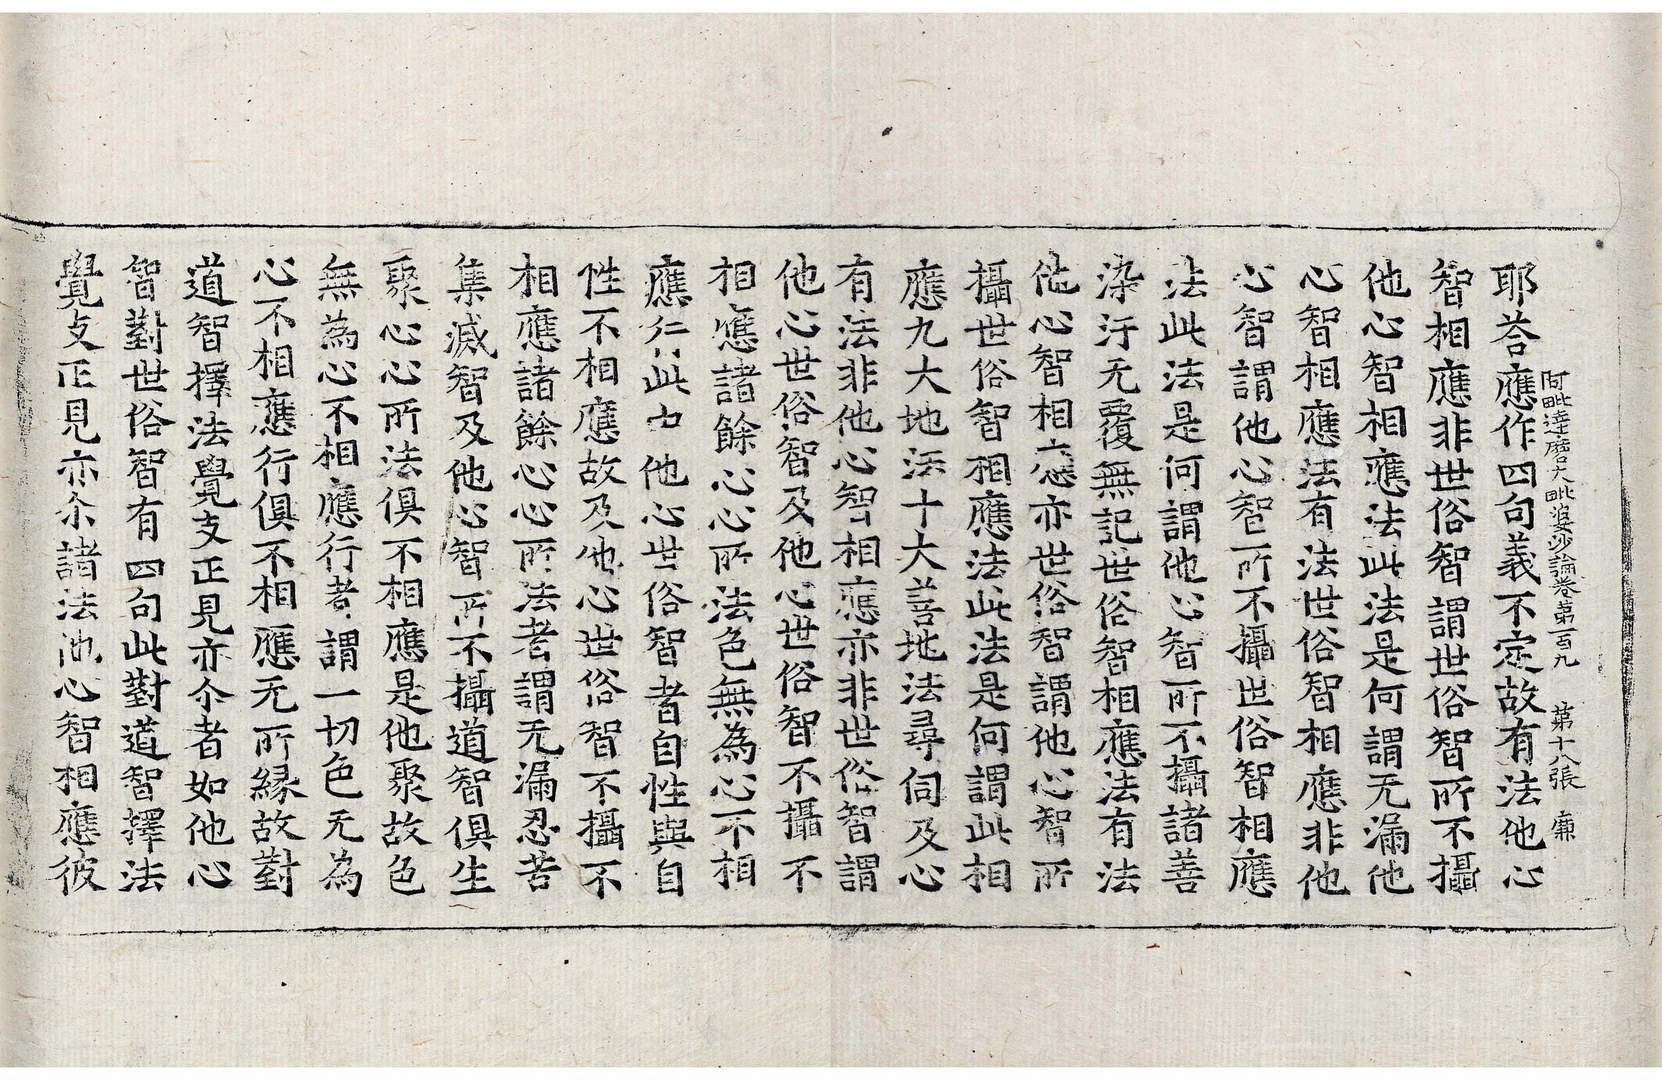 阿毗達磨大毗婆沙論卷第一百九 第十八張 廉
耶荅應作四句義不定故有法他心
智相應非世俗智謂世俗智所不攝
他心智相應法此法是何謂无漏他
心智相應法有法世俗智相應非他
心智謂他心智所不攝世俗智相應
法此法是何謂他心智所不攝諸善
染汙无覆無記世俗智相應法有法
他心智相應亦世俗智謂他心智所
攝世俗智相應法此法是何謂此相
應九大地法十大善地法尋伺及心
有法非他心智相應亦非世俗智謂
他心世俗智及他心世俗智不攝不
相應諸餘心心所法色無為心不相
應行此中他心世俗智者自性與自
性不相應故及他心世俗智不攝不
相應諸餘心心所法者謂无漏忍苦
集滅智及他心智所不攝道智俱生
聚心心所法俱不相應是他聚故色
無為心不相應行者謂一切色无為
心不相應行俱不相應无所緣故對
道智擇法覺支正見亦尒者如他心
智對世俗智有四句此對道智擇法
覺支正見亦尒諸法他心智相應彼